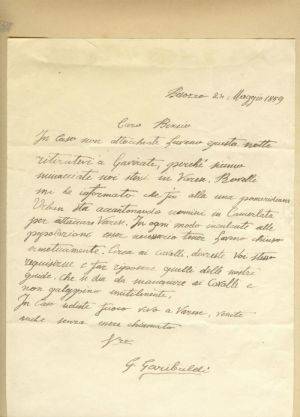 Besozzo 24. Maggio 1859
Caro Bixio
In Caso non attacchiate Laveno questa notte
ritiratevi a Gavirate, perché siamo
minacciati noi stessi in Varese.
mi ha informato che fin alla una pomeridiana
Urban sta accantonando uomini in Camerlata
per attaccare Varese. In ogni modo inculcate alle
popolazioni esser necessario tener Laveno chiuso
ermeticamente. Circa ai cavalli, dovreste voi stesso
requisirne e far riposare quelli delle nostre
guide, che si dia da mangiare ai Cavalli e
non galoppino inutilmente.
In Caso udiste fuoco vivo a Varese, venite
anche senza essere chiamato
G. Garibaldi